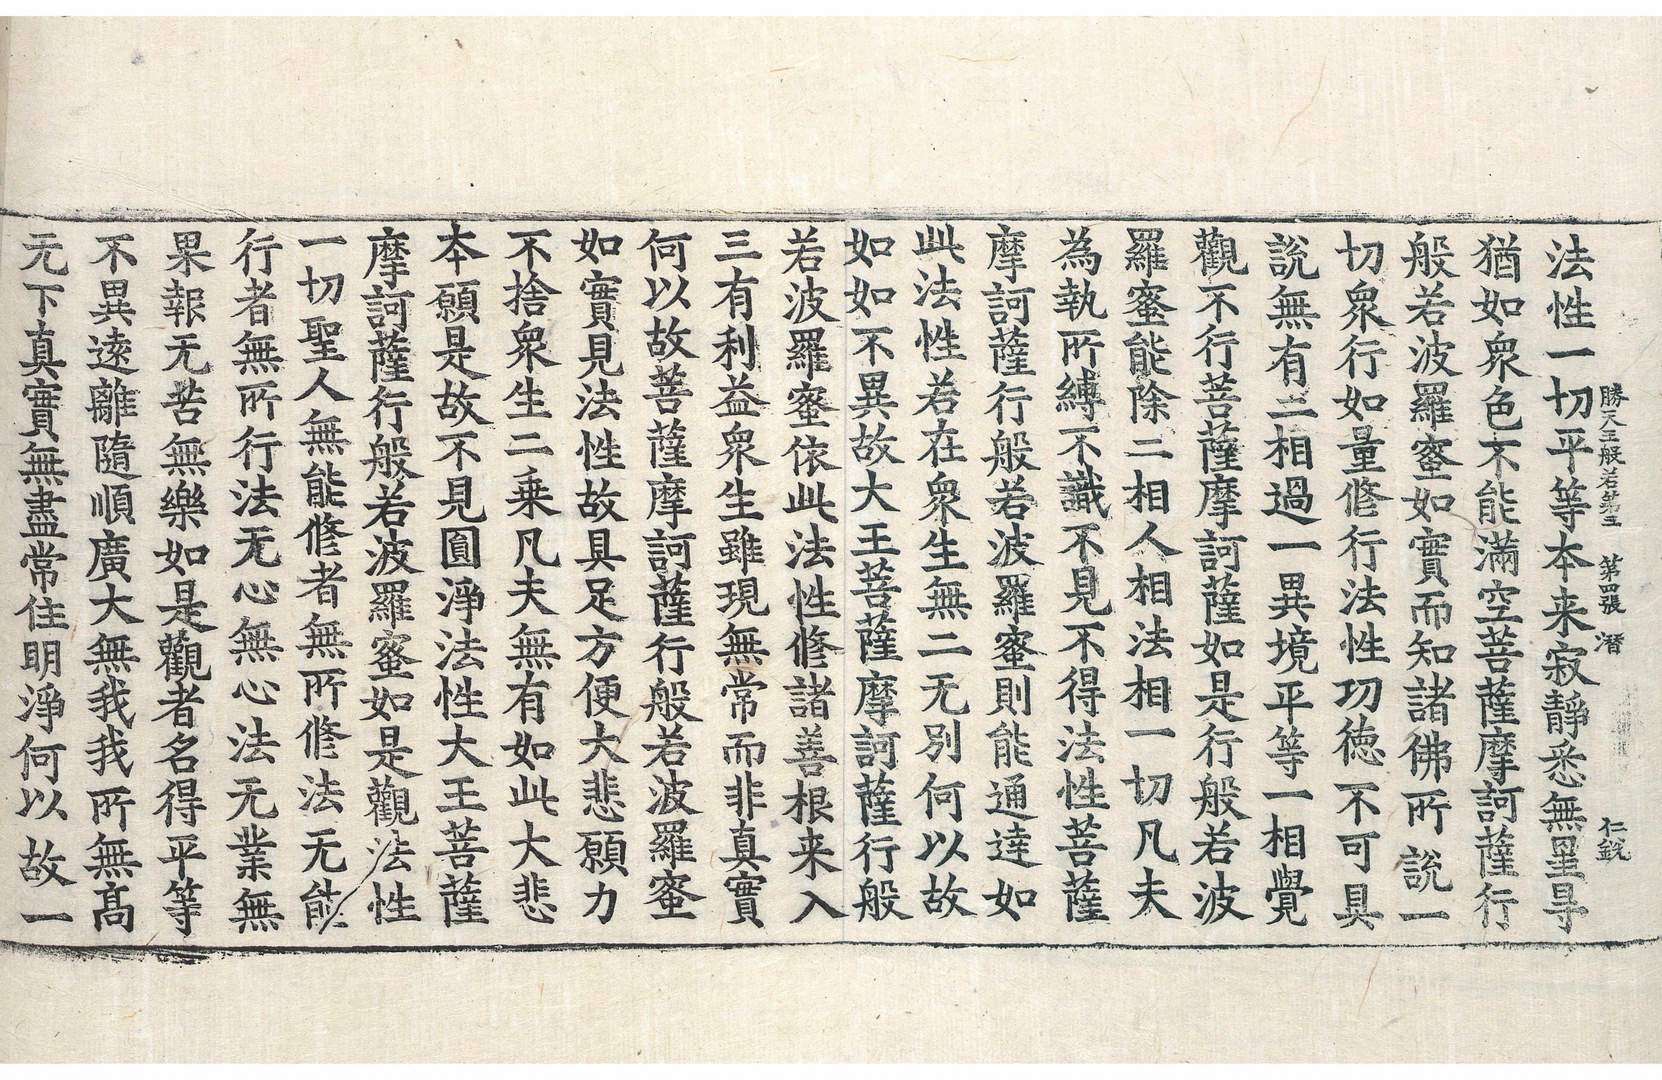 勝天王般若第三 第四張 潛 仁銳
法性一切平等本来寂靜悉無罣㝵
猶如衆色不能滿空菩薩摩訶薩行
般若波羅蜜如實而知諸佛所說一
切衆行如量修行法性功徳不可具
說無有二相過一異境平等一相覺
觀不行菩薩摩訶薩如是行般若波
羅蜜能除二相人相法相一切凡夫
為執所縛不識不見不得法性菩薩
摩訶薩行般若波羅蜜則能通達如
此法性若在衆生無二无別何以故
如如不異故大王菩薩摩訶薩行般
若波羅蜜依此法性修諸善根来入
三有利益衆生雖現無常而非真實
何以故菩薩摩訶薩行般若波羅蜜
如實見法性故具足方便大悲願力
不捨衆生二乗凡夫無有如此大悲
本願是故不見圓淨法性大王菩薩
摩訶薩行般若波羅蜜如是觀法性
一切聖人無能修者無所修法无能
行者無所行法无心無心法无業無
果報无苦無樂如是觀者名得平等
不異逺離隨順廣大無我我所無髙
无下真實無盡常住明淨何以故一